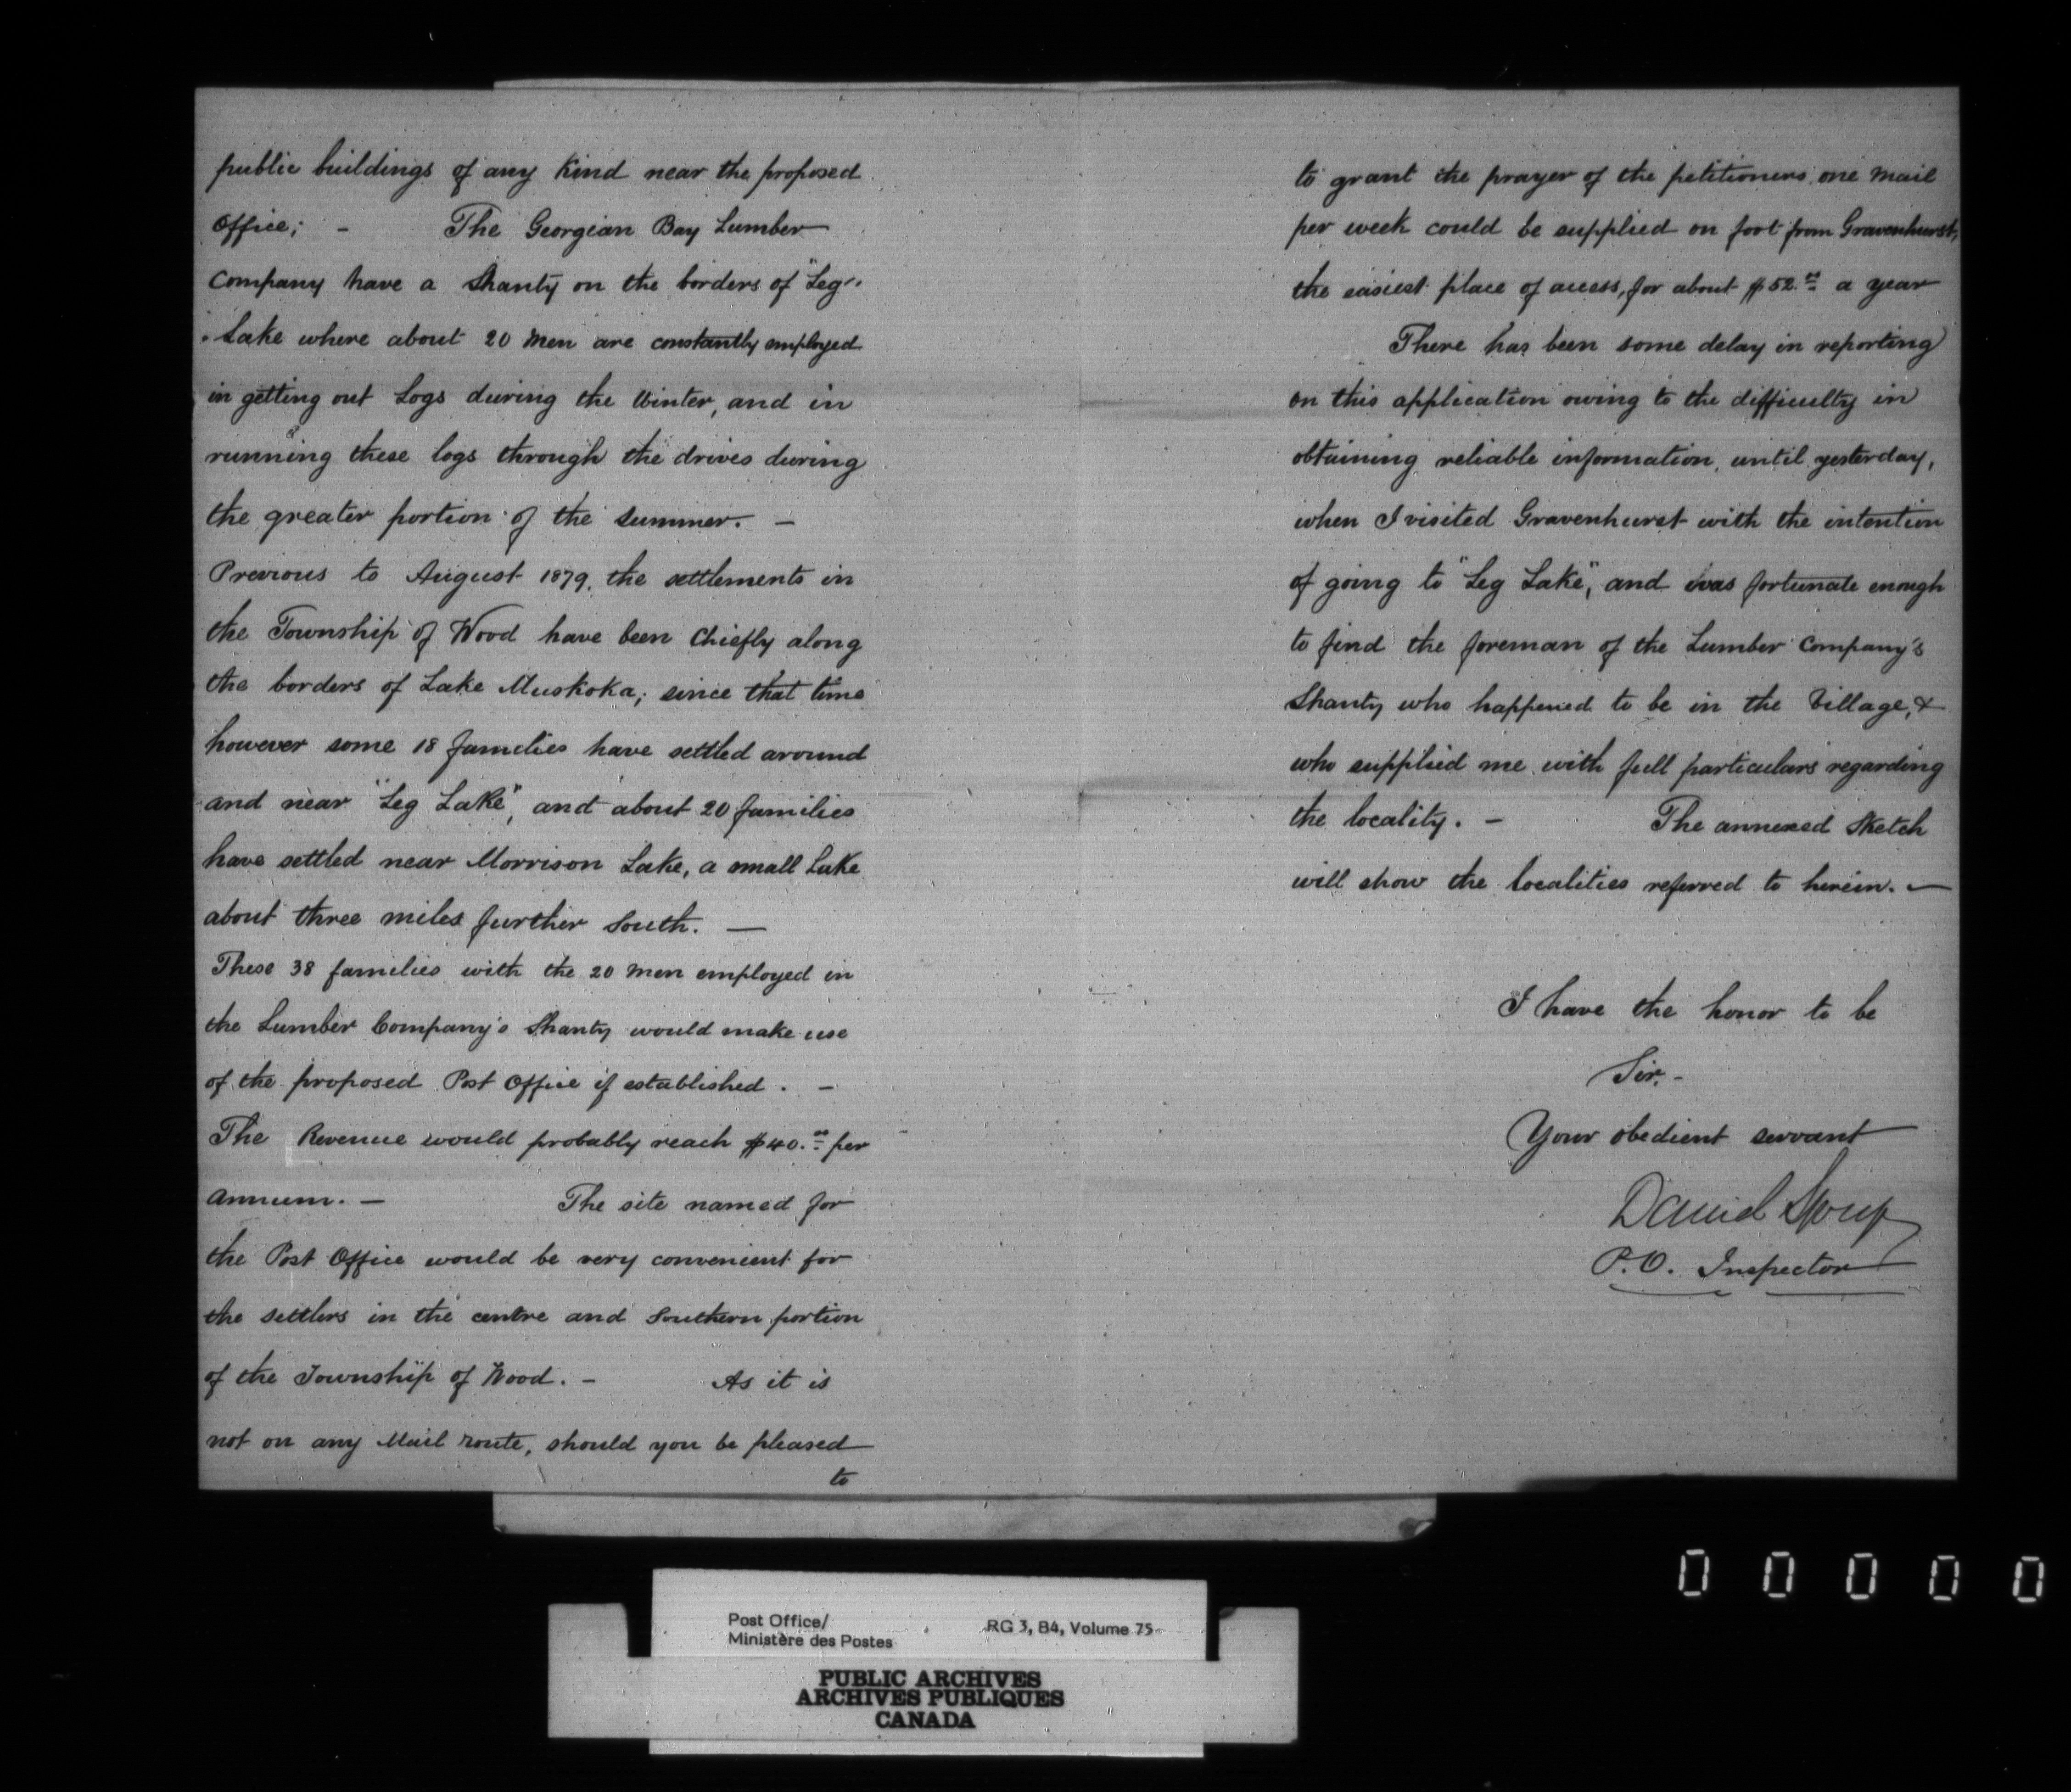 public buildings of any Kind near the proposed
Office; - The Georgian Bay Lumber
Company have a Shanty on the borders of "Leg"
Lake where about 20 men are constantly employed
in getting out Logs during the Winter, and in
running these logs through the drives during
the greater portion of the summer. —
Previous to August 1879, the settlements in
the Township of Wood have been chiefly along
the borders of Lake Muskoka; since that time
however some 18 families have settled around
and near "Leg Lake", and about 20 families
have settled near Morrison Lake, a small Lake
about three miles further South. —
These 38 families with the 20 men employed in
the Lumber Company's Shanty would make use
of the proposed Post Office if established. -
The Revenue would probably reach $40.00 per
annum. — The site named for
the Post Office would be very convenient for
the settlers in the centre and Southern portion
of the Township of Wood. - As it is
not on any Mail route, should you be pleased
to
to grant the prayer of the petitioners one mail
per week could be supplied on foot from Gravenhurst,
the easiest place of access, for about $52.00 a year
There has been some delay in reporting
on this application owing to the difficulty in
obtaining reliable information, until yesterday,
when I visited Gravenhurst with the intention
of going to "Leg Lake", and was fortunate enough
to find the foreman of the Lumber Company's
Shanty who happened to be in the Village, &
who supplied me with full particulars regarding
the locality. - The annexed Sketch
will show the localities referred to herein. —
I have the honor to be
Sir. -
Your obedient servant
Daniel Spry
P.O. Inspector
00000
Post Office/
Ministère des Postes
RG 3, B4, Volume 75
PUBLIC ARCHIVES
ARCHIVES PUBLIQUES
CANADA